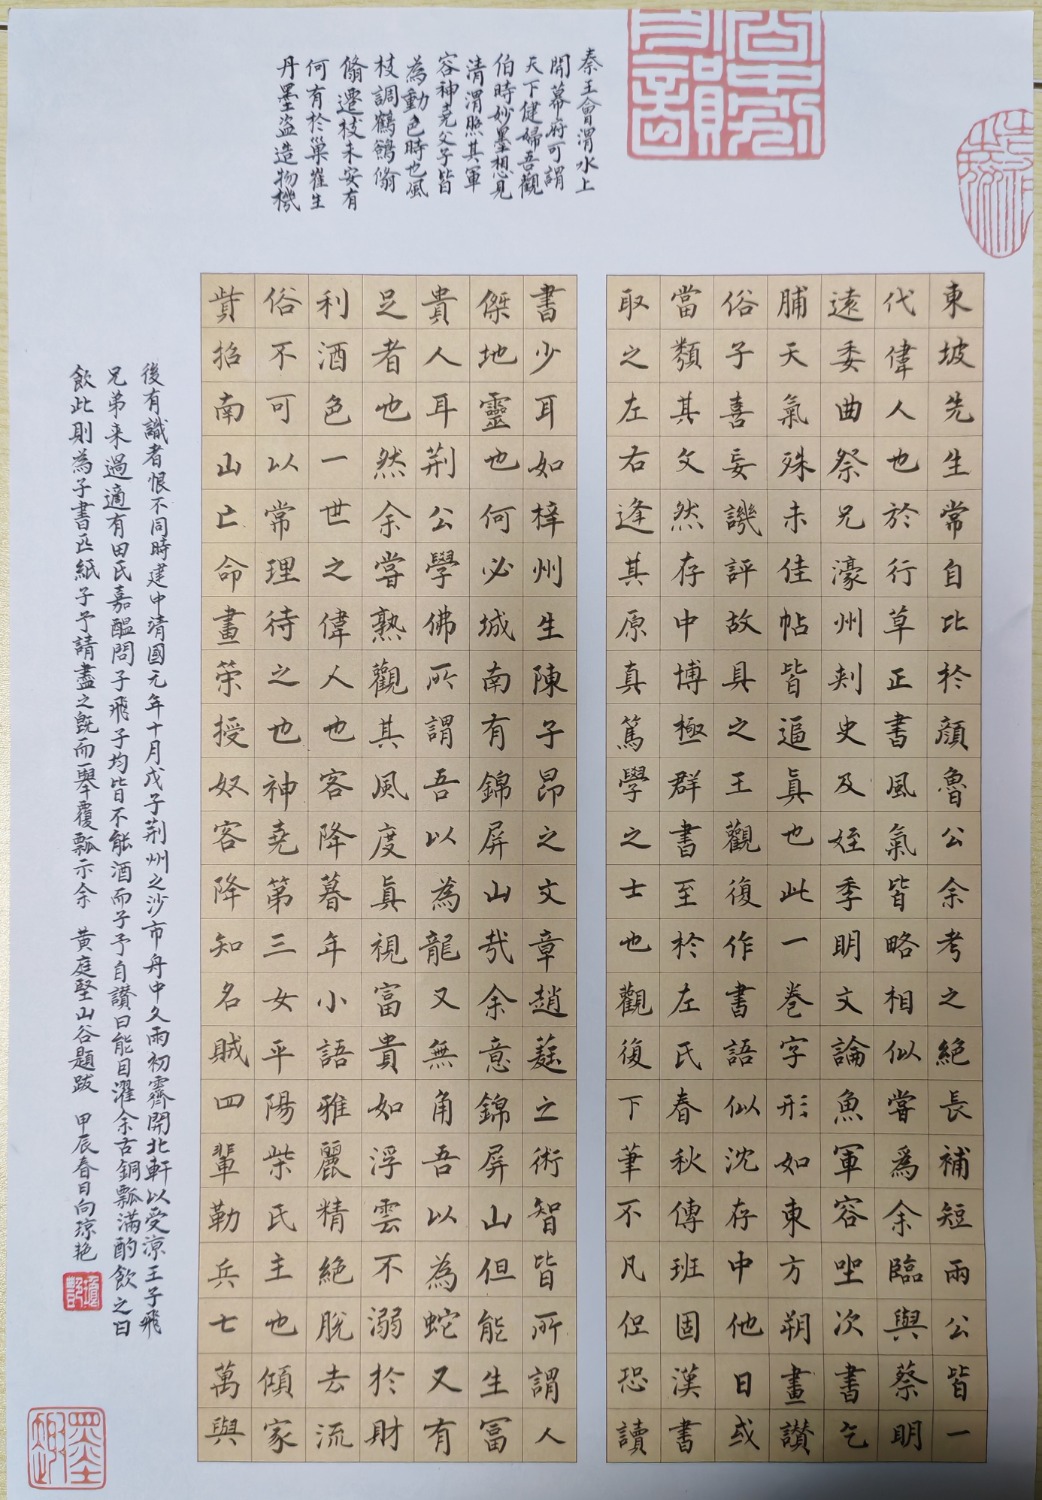 東坡先生常自比於顔魯公余考之絕長補短兩公皆一
代偉人也於行草正書風氣皆略相似嘗爲余臨與蔡明
遠委曲祭兄濠州刾史及姪季明文論魚軍容坐次書乞
脯天氣殊未佳帖皆逼真也此一卷字形如東方朔畫讃
俗子喜妄譏評故具之王觀復作書語似沈存中他日或
當類其文然存中博極群書至於左氏春秋傳班固漢書
取之左右逢其原真篤學之士也觀復下筆不凡但恐讀
書少耳如梓州生陳子昂之文章趙蕤之術智皆所謂人
傑地靈也何必城南有錦屏山哉余意錦屏山但能生冨
貴人耳荊公學佛所謂吾以為龍又無角吾以為蛇又有
足者也然余嘗熟觀其風度真視富貴如浮雲不溺於財
利酒色一世之偉人也客降暮年小語雅麗精絕脫去流
俗不可以常理待之也神堯第三女平陽柴氏主也傾家
貲招南山亡命畫策授奴客降知名賊四輩勒兵七萬與
秦王會渭水上
開幕府可謂
天下健婦吾觀
伯時妙墨想見
清渭照其軍
容神堯父子皆
為動色時也風
枝調鶴鶺翛
翛遷枝未安有
何有於巢崔生
丹墨盗造物機
後有識者恨不同時建中清國元年十月戊子荊州之沙市舟中久雨初霽開北軒以受涼王子飛
兄弟来過適有田氏嘉醖問子飛子均皆不能酒而子予自讃曰能因濯余古銅瓢滿酌飲之曰
飲此則為子書匹紙子予請盡之既而一舉覆瓢示余 黄庭堅山谷題跋 甲辰春日向琼艳